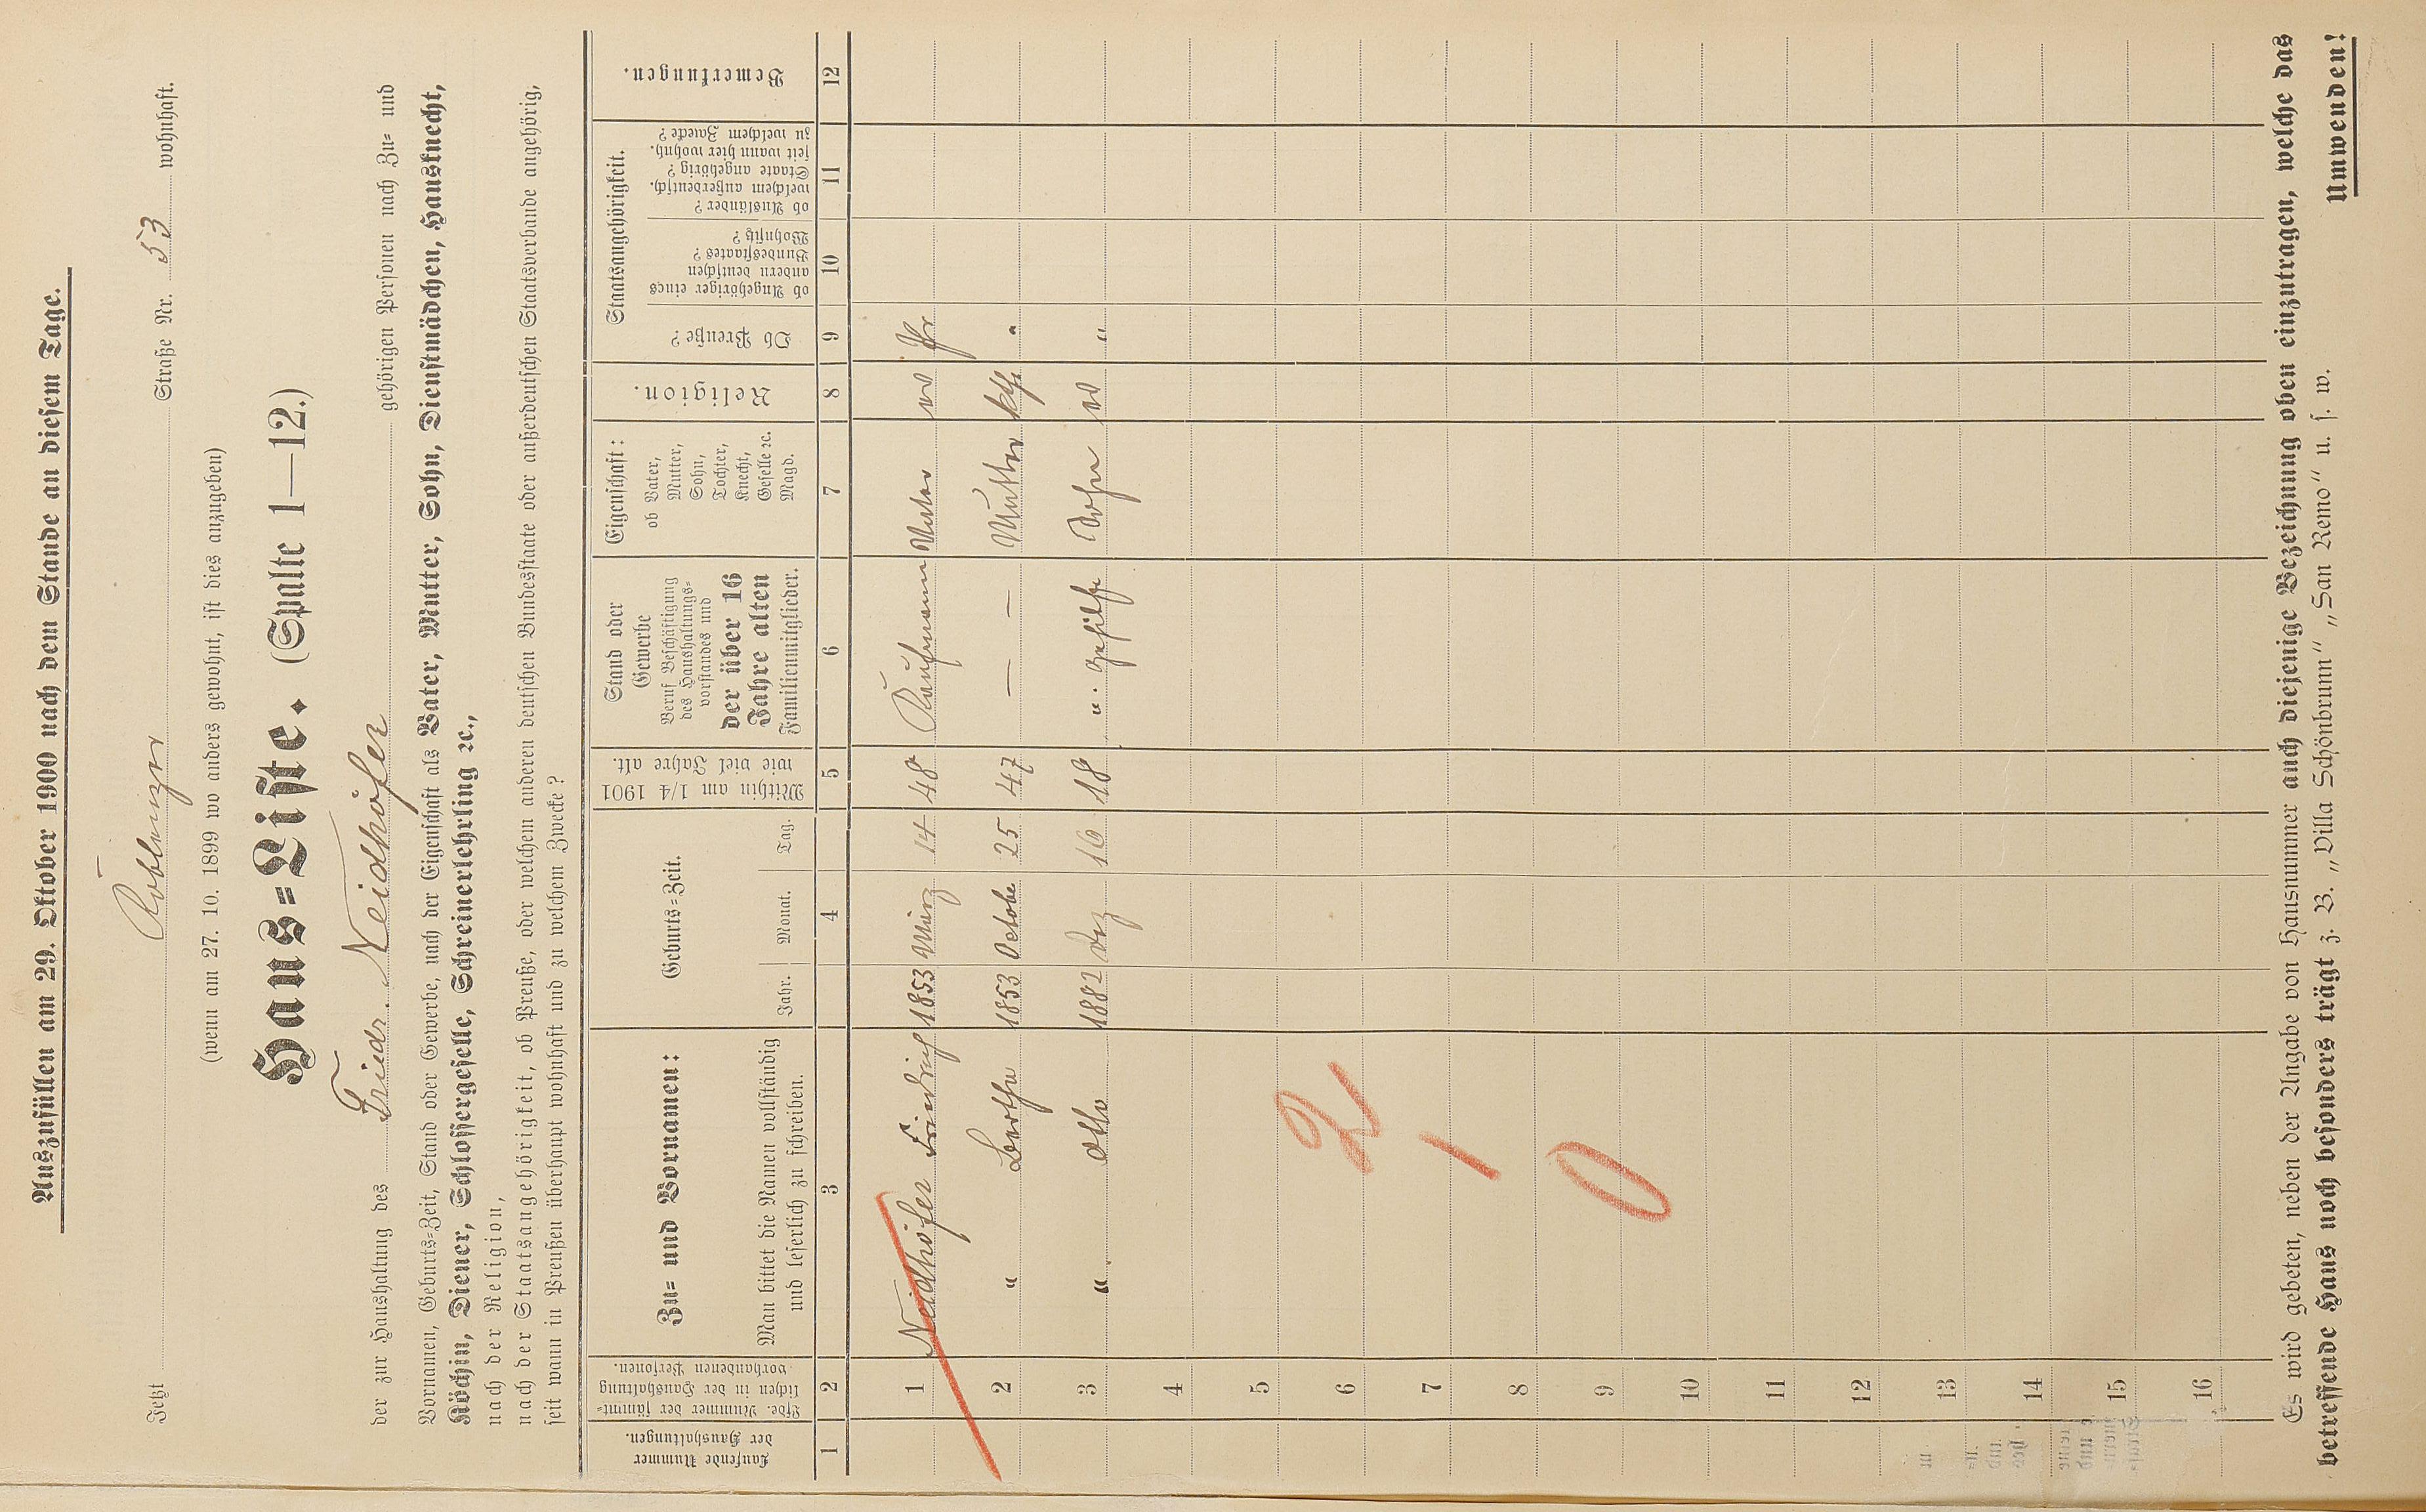 Auszufüllen am 29. Oktober 1900 nach dem Stande an diesem Tage.
Jetzt Koblenzer Straße Nr. 53 wohnhaft.
(wenn am 27. 10. 1899 wo anders gewohnt, ist dies anzugeben)
Haus=Liste. (Spalte 1—12.)
der zur Haushaltung des Friedr. Neidhöfer gehörigen Personen nach Zu= und
Vornamen, Geburts=Zeit, Stand oder Gewerbe, nach der Eigenschaft als Vater, Mutter, Sohn, Dienstmädchen, Hausknecht,
Köchin, Diener, Schlossergeselle, Schreinerlehrling ꝛc.,
nach der Religion,
nach der Staatsangehörigkeit, ob Preuße, oder welchem anderen deutschen Bundesstaate oder außerdeutschen Staatsverbande angehörig,
seit wann in Preußen überhaupt wohnhaft und zu welchem Zwecke?
Laufende Nummer
der Haushaltungen.
Lfde. Nummer der sämmt=
lichen in der Haushaltung
vorhandenen Personen.
Zu= und Vornamen:
Man bittet die Namen vollständig
und leserlich zu schreiben.
Geburts=Zeit.
Jahr. Monat. Tag.
Mithin am 1/4 1901
wie viel Jahre alt.
Stand oder
Gewerbe
Beruf Beschäftigung
des Haushaltungs=
vorstandes und
der über 16
Jahre alten
Familienmitglieder.
Eigenschaft:
ob Vater,
Mutter,
Sohn,
Tochter,
Knecht,
Geselle ꝛc.
Magd.
Religion.
Staatsangehörigkeit.
Ob Preuße?
ob Angehöriger eines
andern deutschen
Bundesstaates?
Wohnsitz?
ob Ausländer?
welchem außerdeutsch.
Staate angehörig?
seit wann hier wohnh.
zu welchem Zwecke?
Bemerkungen.
1 2 3 4 5 6 7 8 9 10 11 12
1 Neidhöfer Friedrich 1853 März 14 48 Kaufmann Vater ev Pr
2 " Bertha 1853 Octobe 25 47 — — Mutter kth "
3 " Otto 1882 Dez 16 18 " Gehilfe Sohn ev "
4
5
6
7
8
9
10
11
12
13
14
15
16
2
1
0
Es wird gebeten, neben der Angabe von Hausnummer auch diejenige Bezeichnung oben einzutragen, welche das
betreffende Haus noch besonders trägt z. B. „Villa Schönbrunn" „San Remo" u. s. w.
Umwenden!